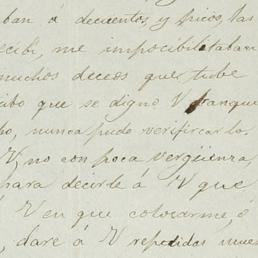 ban á docientos, y picos, las
recibí, me imposibilitaban
muchos deceos que tube
ibo que se digno V franque
po, nunca pude verificarlo.
V, no con poca vergüenza,
para decirle á V que
á V en que colocarme, ó
, daré á V repetidas mues